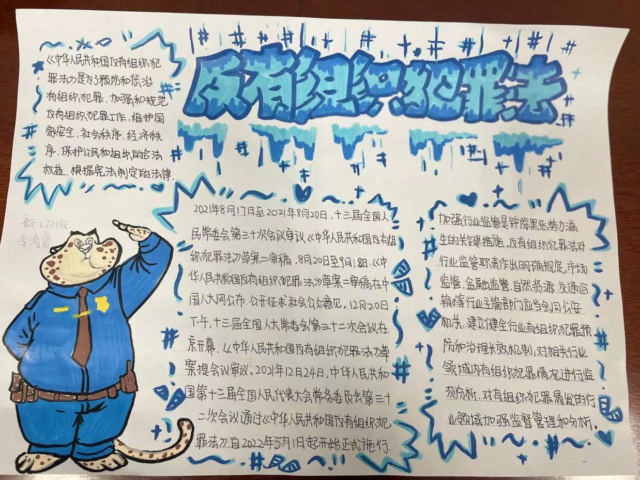 反有组织犯罪法
《中华人民共和国反有组织犯
罪法》是为了预防和惩治
有组织犯罪,加强和规范
反有组织犯罪工作,维护国
家安全、社会秩序、经济秩
序,保护公民和组织的合法
权益,根据宪法制定的法律.
2021年8月17日至2021年8月20日,十三届全国人
民常委会第三十次会议审议《中华人民共和国反有组
织犯罪法》草案二审稿.8月20日至9月18日,《中
华人民共和国反有组织犯罪法》草案二审稿在中
国人大网公布,公开征求社会公众意见,12月20日
下午,十三届全国人大常委会第三十二次会议在
京开幕.《中华人民共和国反有组织犯罪法》草
案提会议审议.2021年12月24日,中华人民共和
国第十三届全国人民代表大会常务委员会第三十
二次会议通过《中华人民共和国反有组织犯
罪法》自2022年5月1日起开始正式施行.
加强行业监管是铲除黑恶势力滋
生的关键措施,反有组织犯罪法对
行业监管职责作出明确规定,市场
监管、金融监管、自然资源、交通运
输等行业主管部门应当会同公安
机关,建立健全行业有组织犯罪预
防和治理长效机制,对相关行业
领域内有组织犯罪情况进行监
测分析,对有组织犯罪易发的行
业领域加强监督管理和分析.